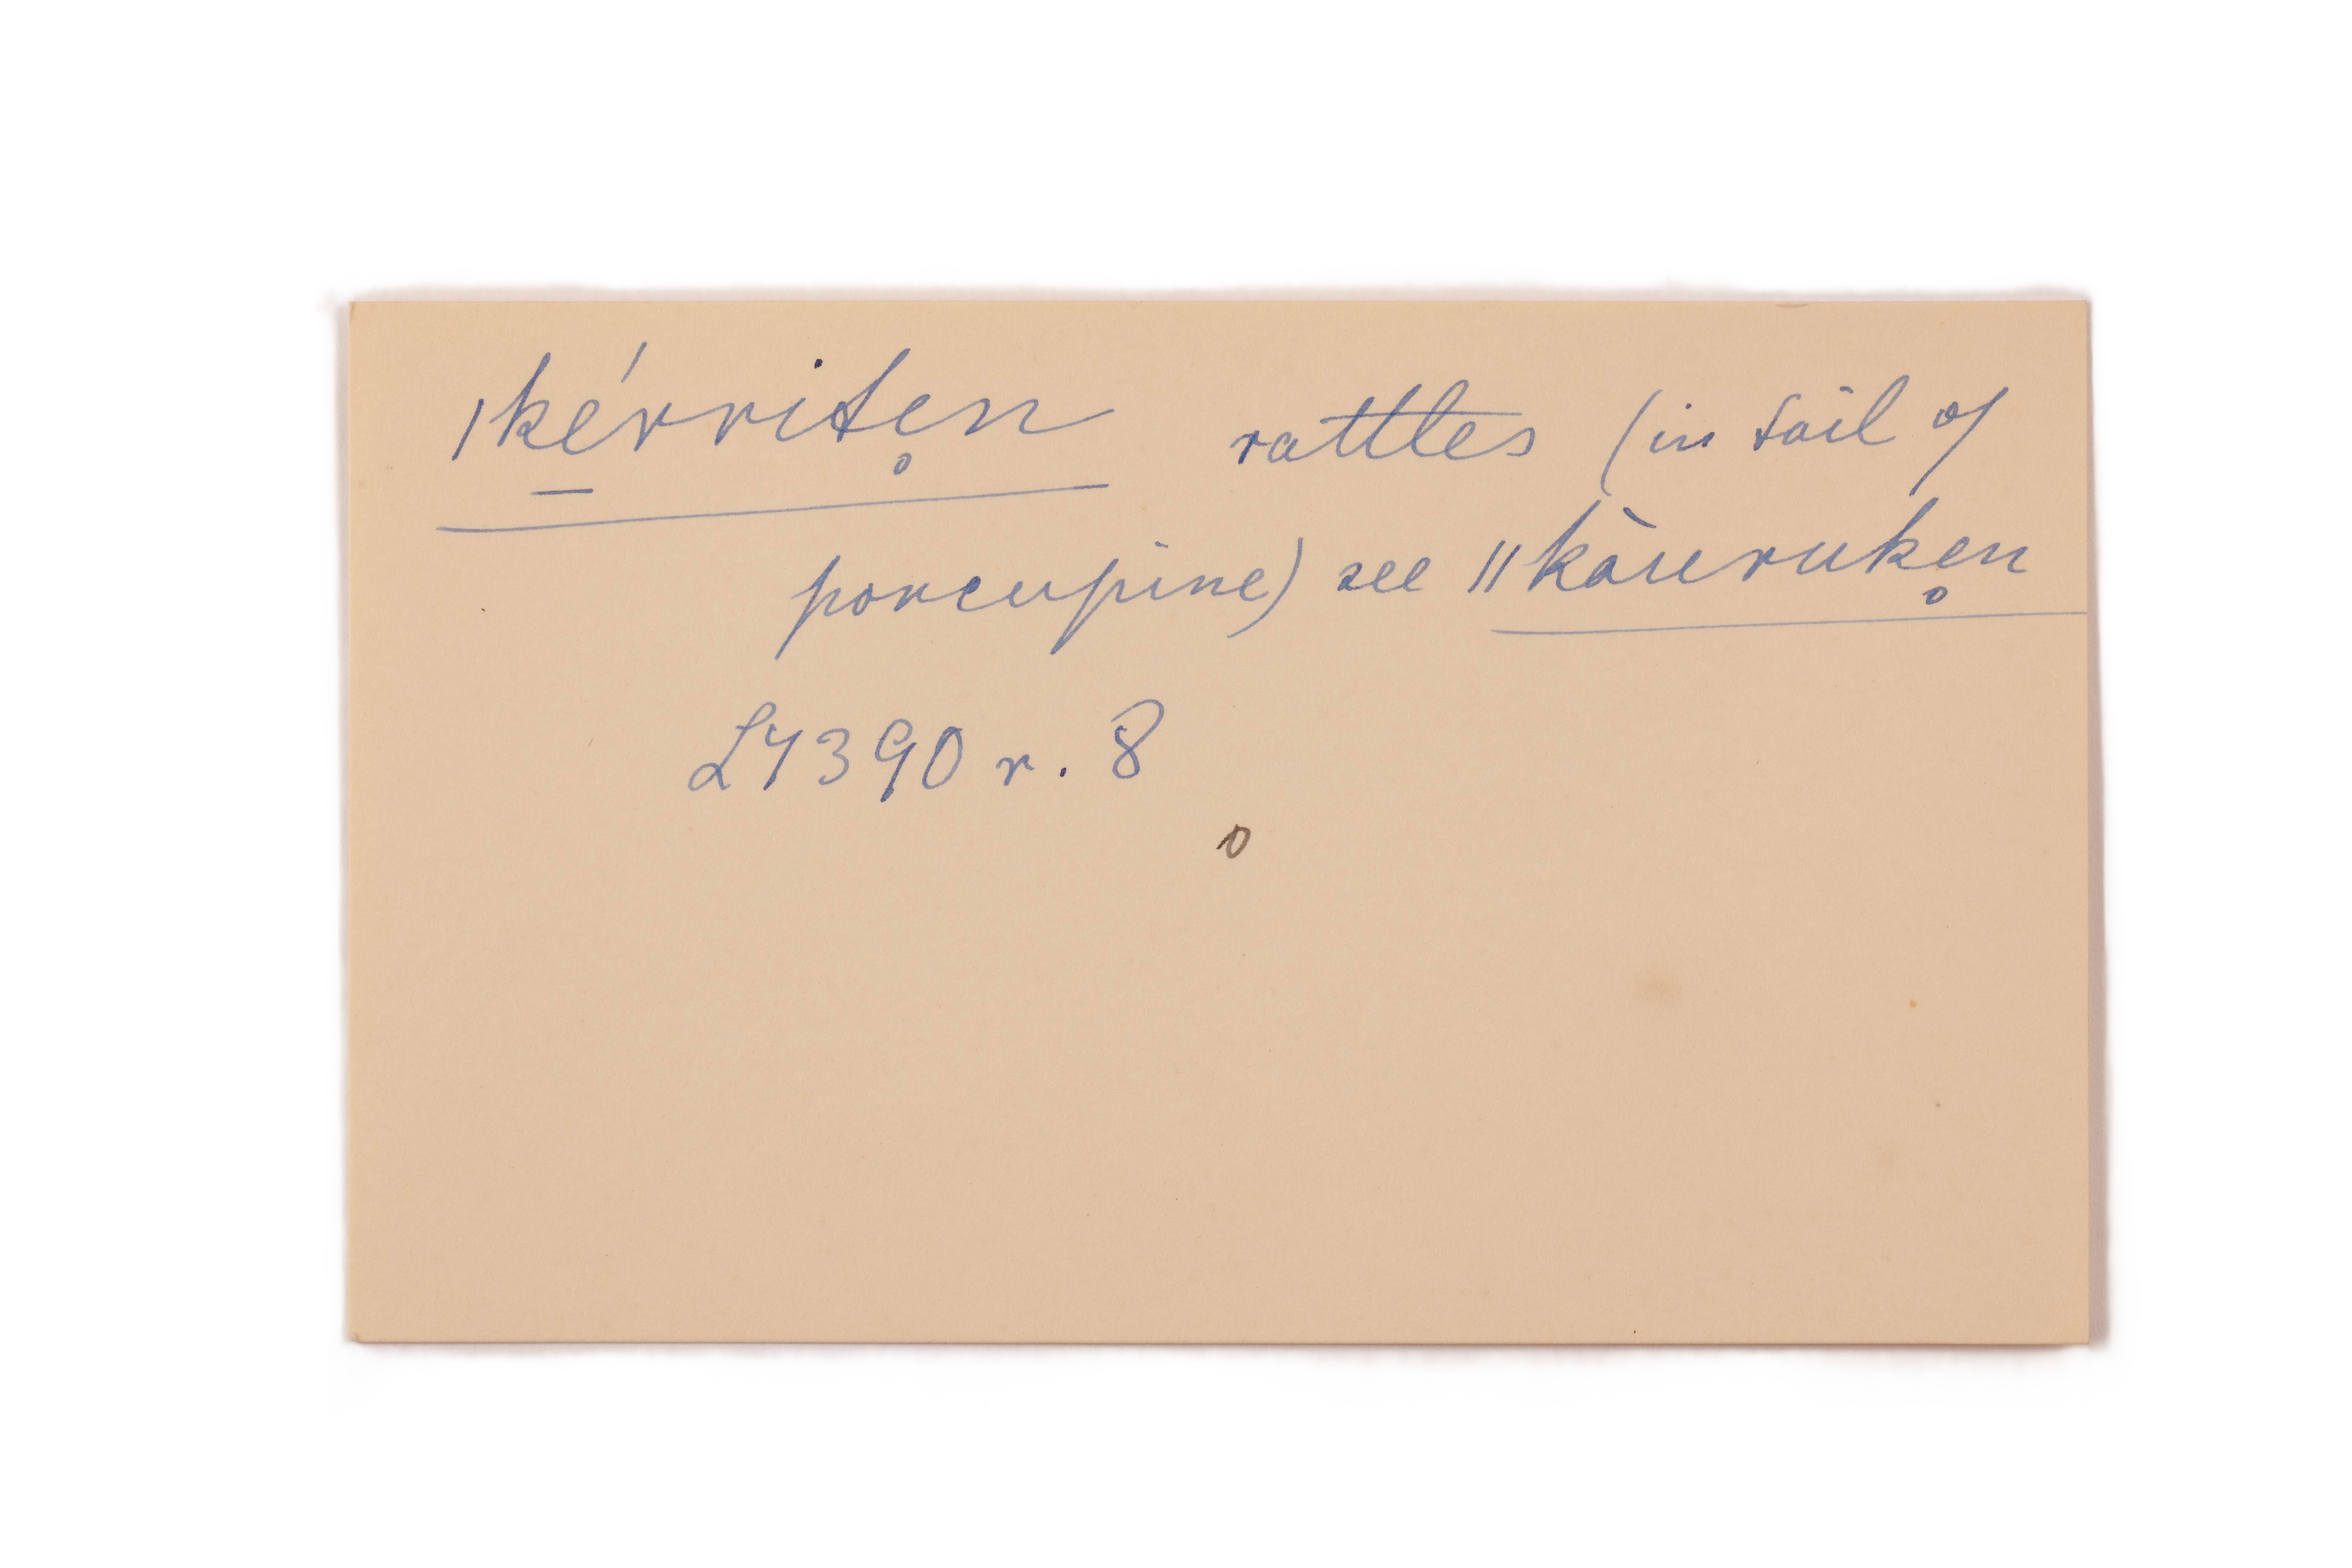 |ḵérriten̥ rattles (in tail of
porcupine) see ||kàuruken̥
L7390 r. 8
o